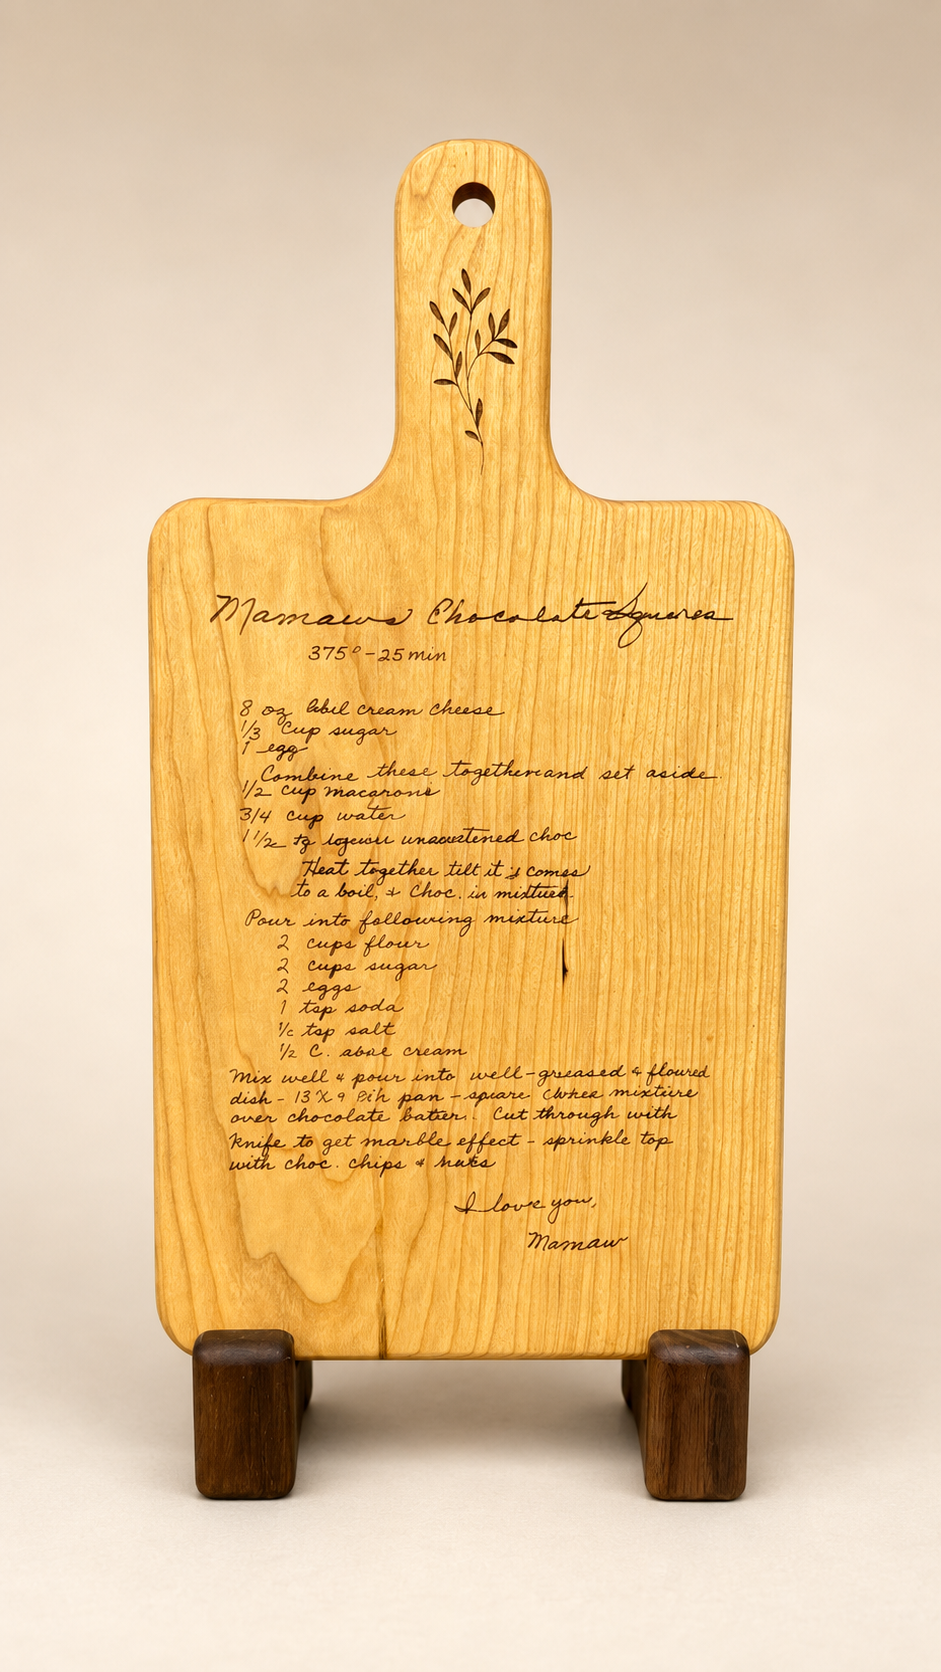 Mamaws Chocolate Squares
375° - 25 min
8 oz cream cheese
1/3 cup sugar
1 egg
Combine these together and set aside.
1/2 cup macaroni
3/4 cup water
1 1/2 choc
Heat together tilt it is comes
to a boil, & choc. in mixture.
Pour into following mixture
2 cups flour
2 cups sugar
2 eggs
1 tsp soda
tsp salt
1/2 C. cream
Mix well & pour into well-greased & floured
dish - 13 X 9 pan - mixture
over chocolate Cut through with
knife to get marble effect - sprinkle top
with choc. chips & nuts
I love you,
Mamaw